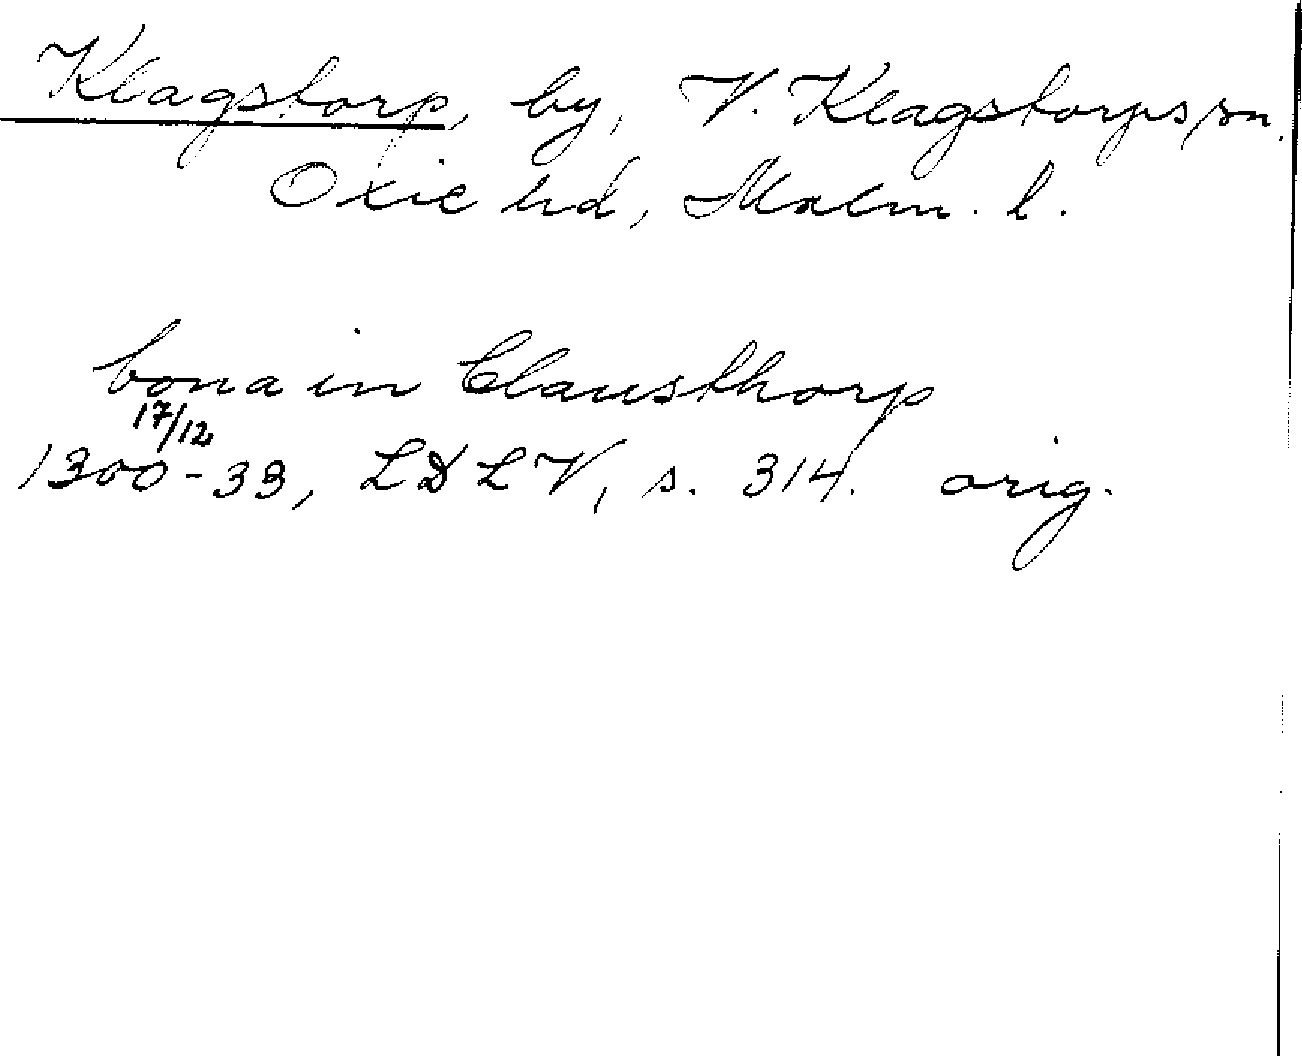 Klagstorp, by, V. Klagstorps sn.
Oxie hd, Malm. l.
bona in Clausthorp
17/12
1300-33, LDLV, s. 314. orig.